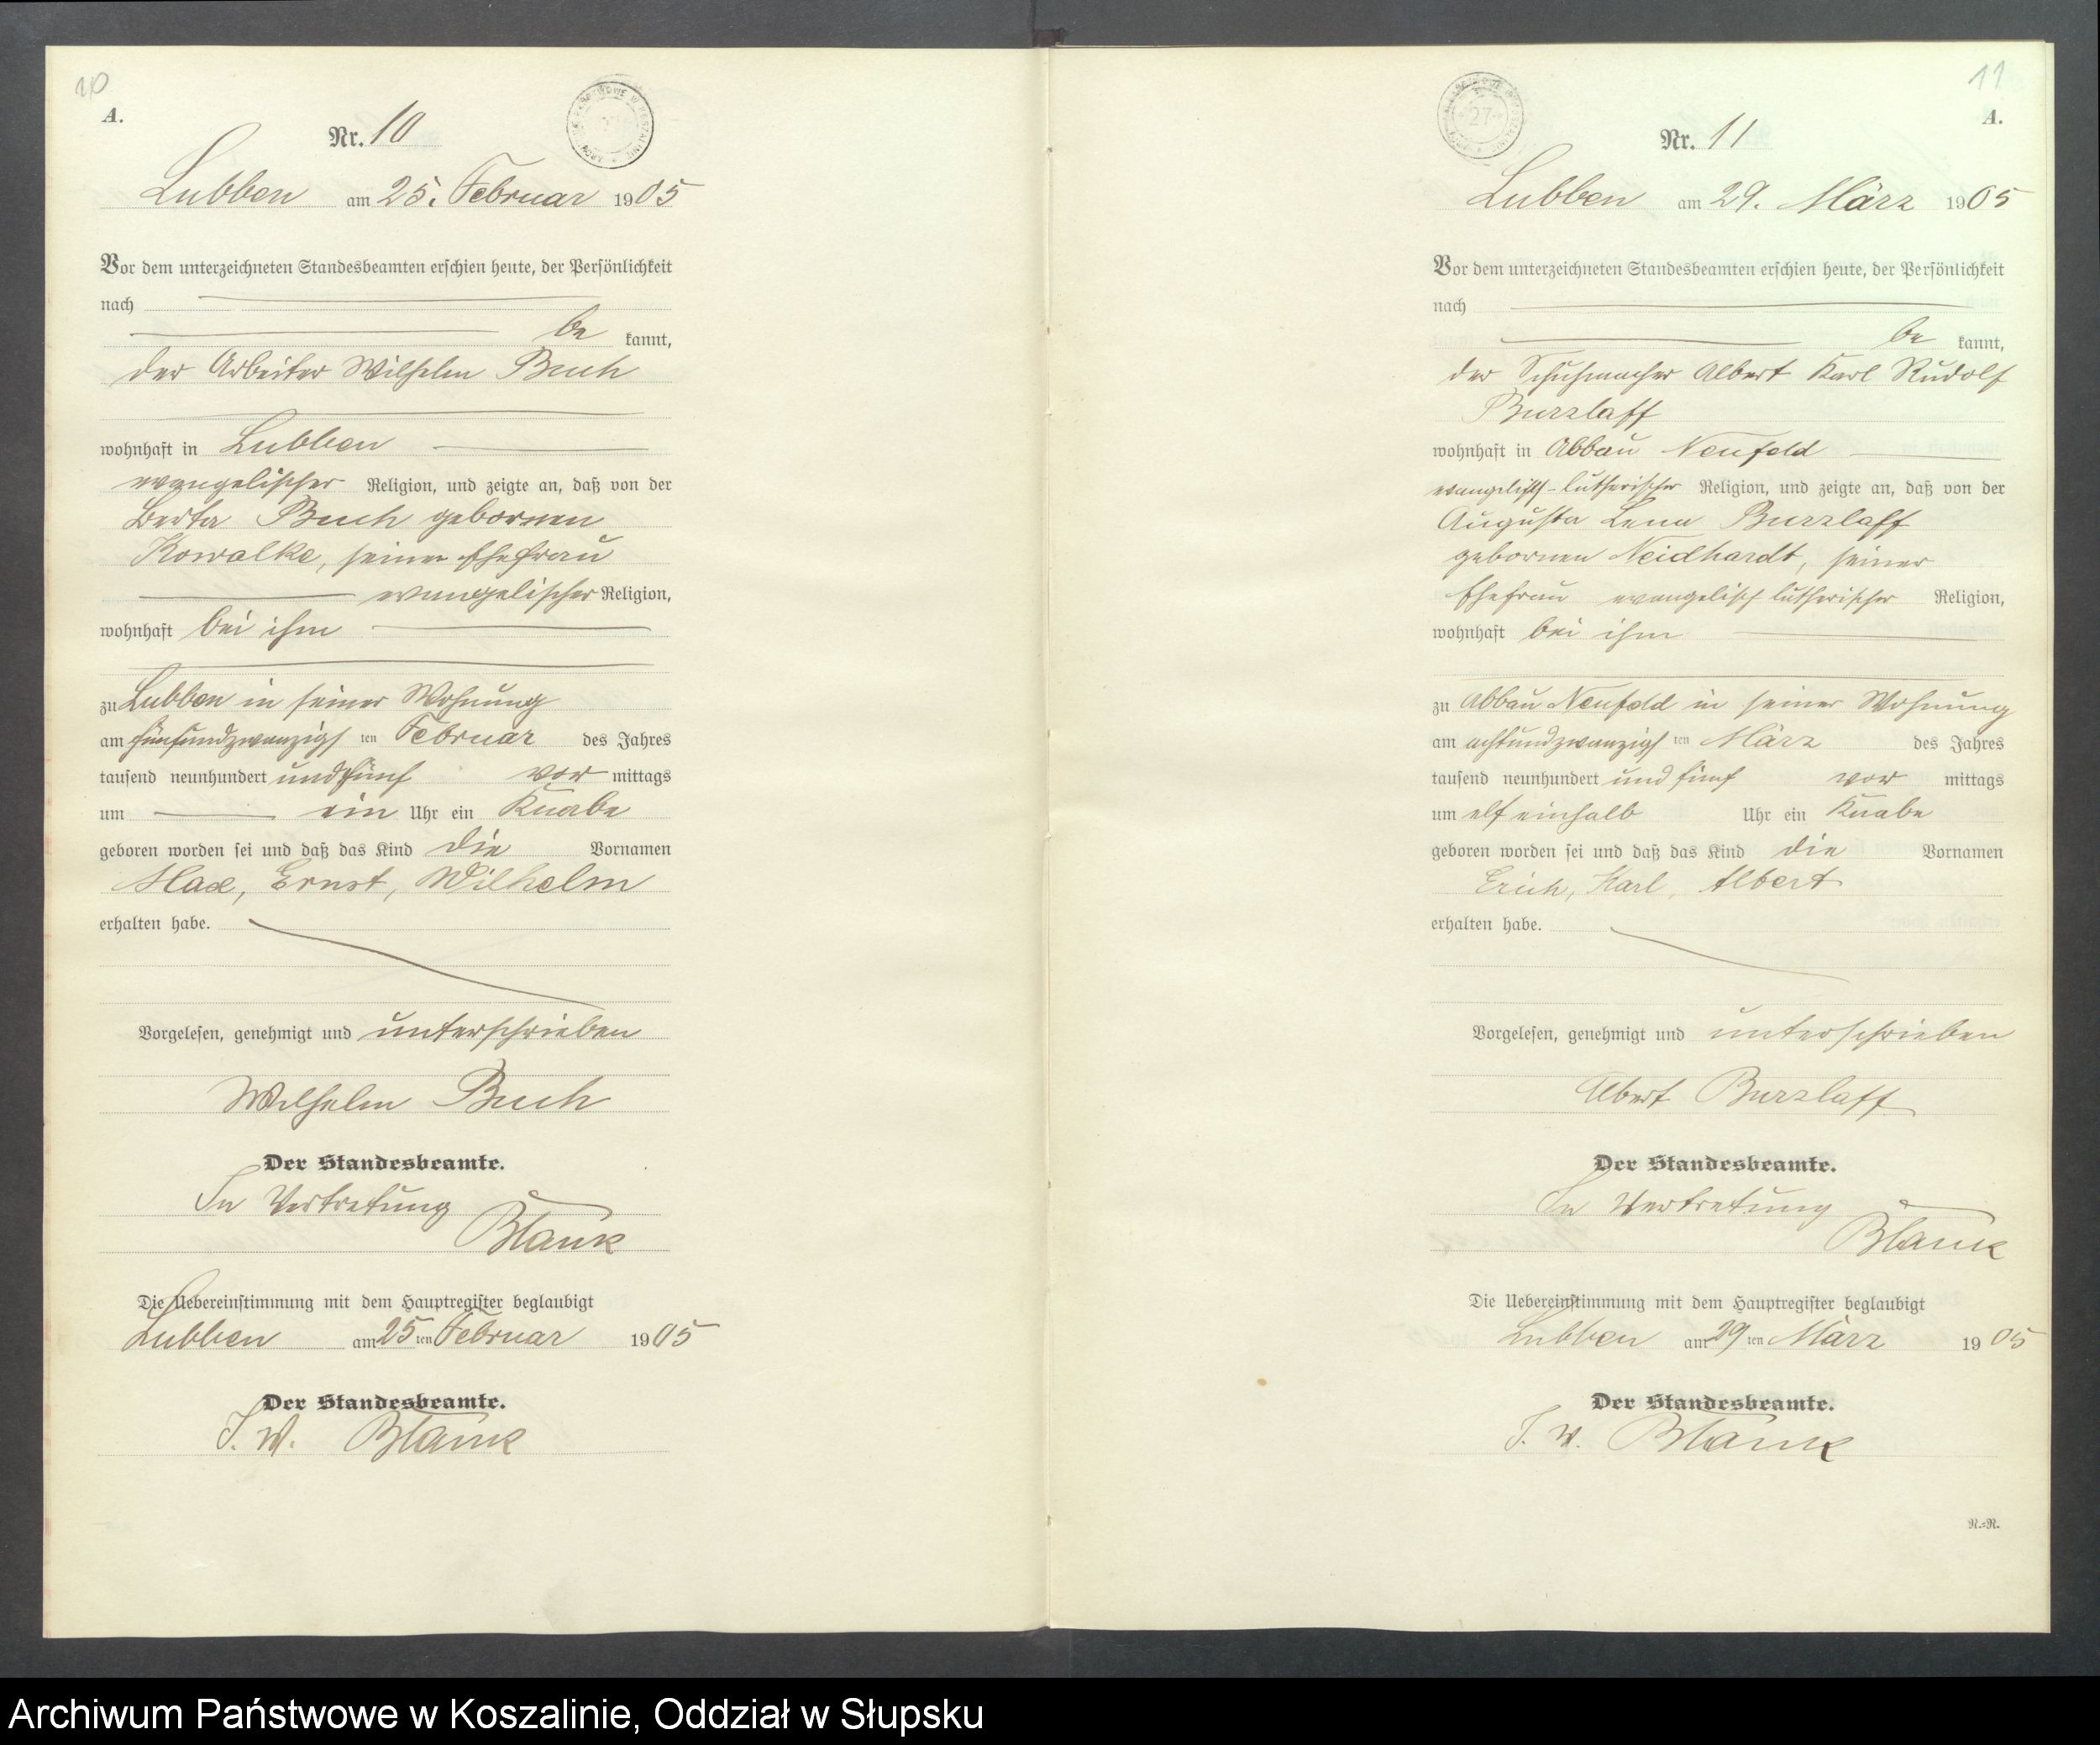 10
A.
Nr. 10
Lubben am 25. Februar 1905
Vor dem unterzeichneten Standesbeamten erschien heute, der Persönlichkeit
nach
be kannt,
der Arbeiter Wilhelm Buch
wohnhaft in Lubben
evangelischer Religion, und zeigte an, daß von der
Berta Buch gebornen
Kowalke, seiner Ehefrau
evangelischer Religion,
wohnhaft bei ihm
zu Lubben in seiner Wohnung
am fünfundzwanzigs ten Februar des Jahres
tausend neunhundert und fünf vor mittags
um ein Uhr ein Knabe
geboren worden sei und daß das Kind die Vornamen
Max, Ernst, Wilhelm
erhalten habe.
Vorgelesen, genehmigt und unterschrieben
Wilhelm Buch
Der Standesbeamte.
In Vertretung
Blank
Die Uebereinstimmung mit dem Hauptregister beglaubigt
Lubben am 25 ten Februar 1905
Der Standesbeamte.
I. V. Blank
11
A.
27
Nr. 11
Lubben am 29. März 1905
Vor dem unterzeichneten Standesbeamten erschien heute, der Persönlichkeit
nach
be kannt,
der Schuhmacher Albert Karl Rudolf
Burzlaff
wohnhaft in Abbau Neufeld
evangelisch-lutherischer Religion, und zeigte an, daß von der
Augusta Lena Burzlaff
gebornen Neidhardt, seiner
Ehefrau evangelisch lutherischer Religion,
wohnhaft bei ihm
zu Abbau Neufeld in seiner Wohnung
am achtundzwanzigs ten März des Jahres
tausend neunhundert und fünf vor mittags
um elf einhalb Uhr ein Knabe
geboren worden sei und daß das Kind die Vornamen
Erich, Karl, Albert
erhalten habe.
Vorgelesen, genehmigt und unterschrieben
Albert Burzlaff
Der Standesbeamte.
In Vertretung
Blank
Die Uebereinstimmung mit dem Hauptregister beglaubigt
Lubben am 29 ten März 1905
Der Standesbeamte.
I. V. Blank
R.=R.
Archiwum Państwowe w Koszalinie, Oddział w Słupsku